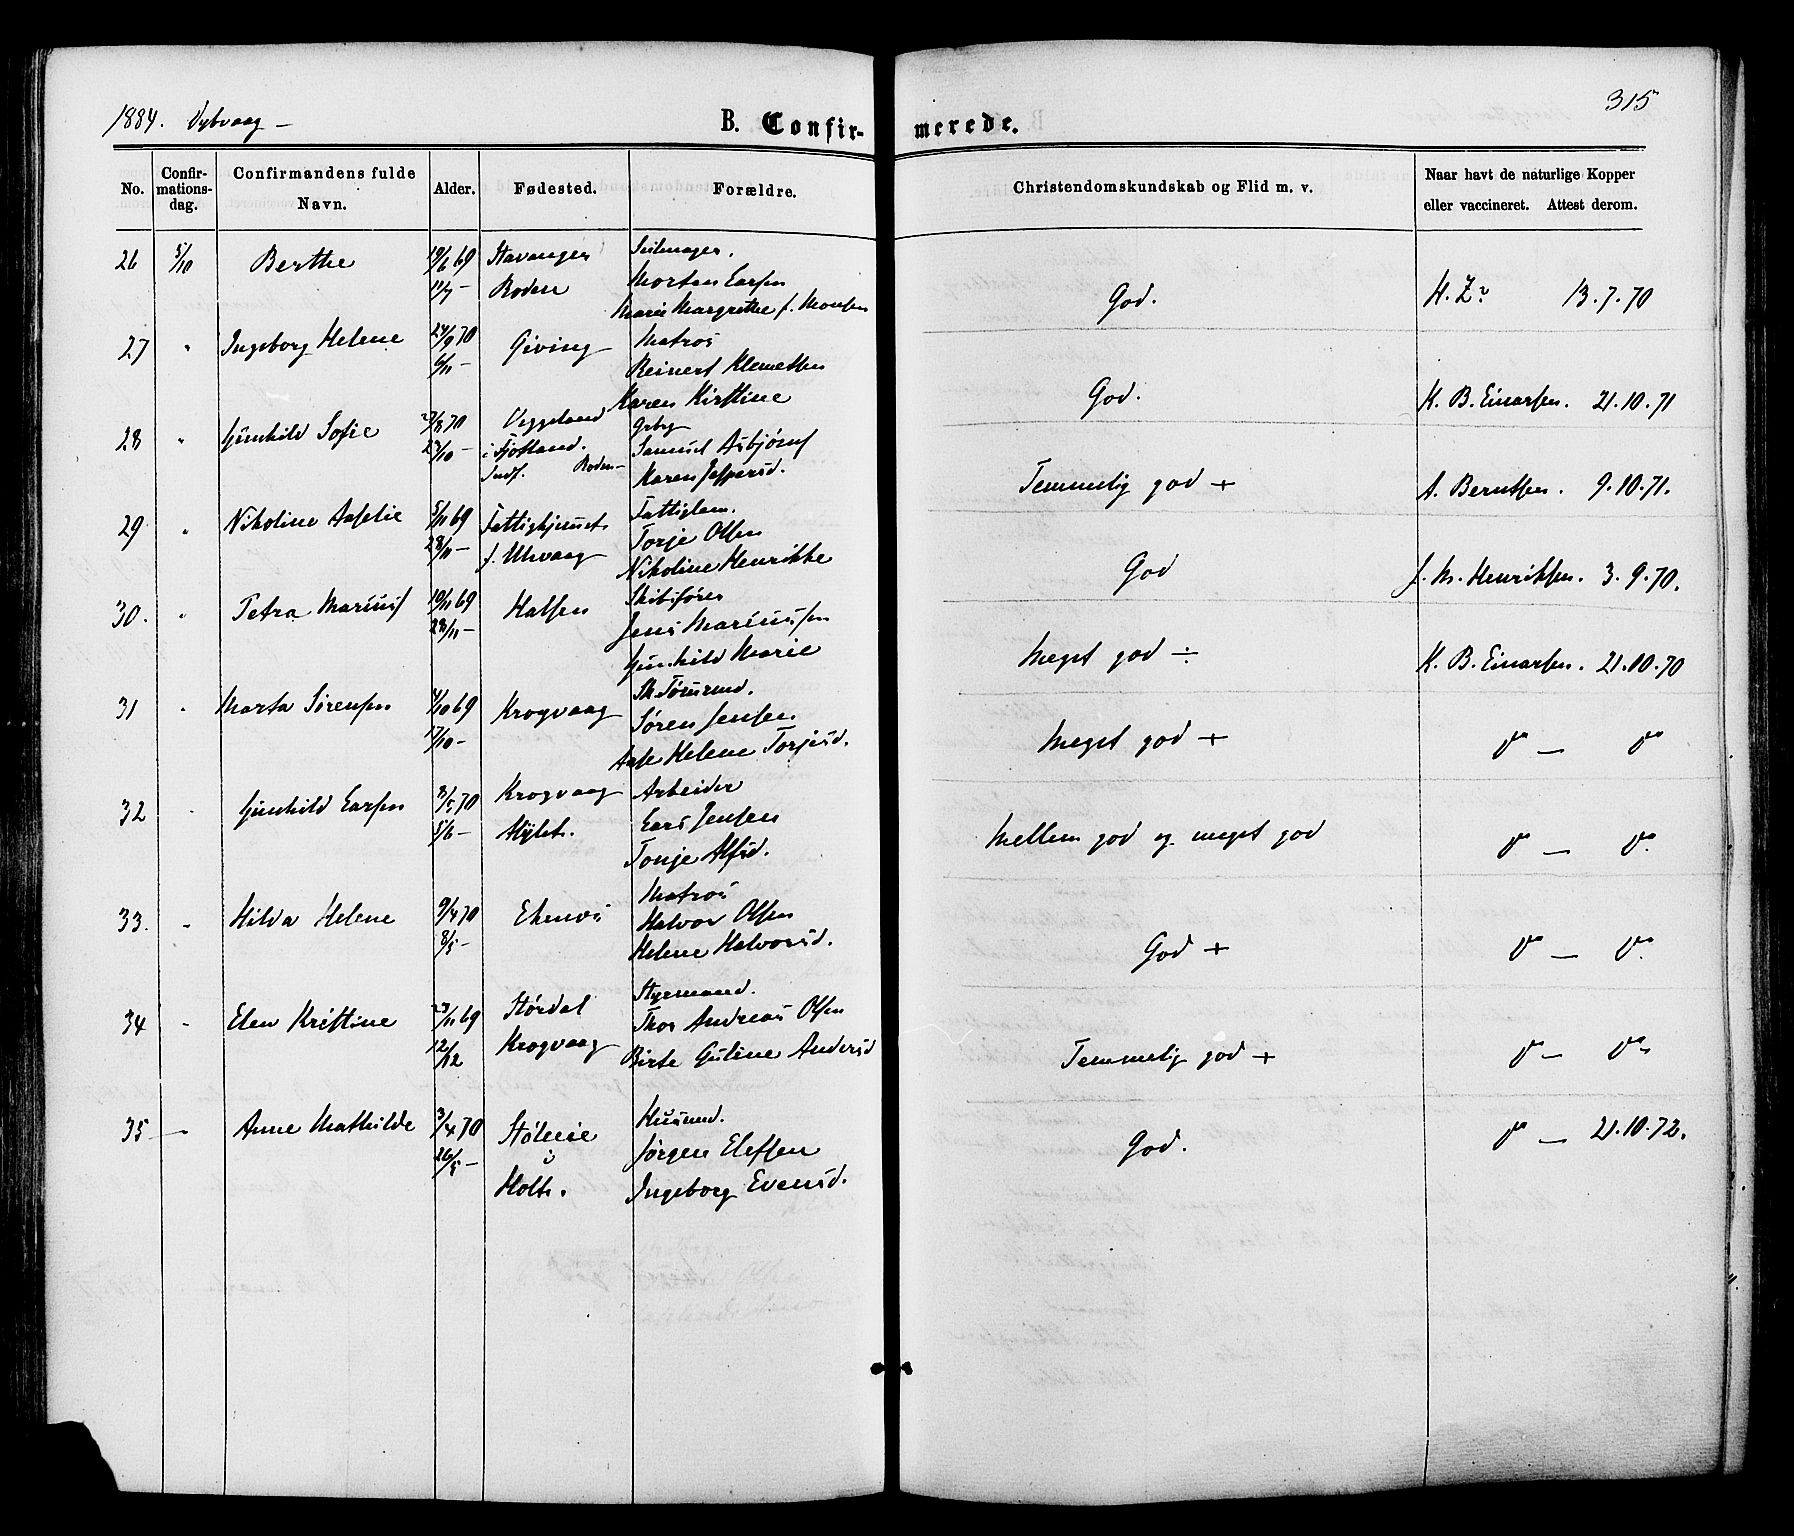 1884. Dybvaag —
B. Confir-
merede.
315
No.
Confir-
mations-
dag.
Confirmandens fulde
Navn.
Alder.
Fødested.
Forældre.
Christendomskundskab og Flid m. v.
Naar havt de naturlige Kopper
eller vaccineret. Attest derom.
26 5/10 Berthe 19/6 69 Stavanger Seilmager.
11/7 — Roden Morten Larsen
Marie Margrethe f. Monsen
God. 13.7.70
27 " Ingeborg Helene 24/9 70 Giving Matros
6/11 — Reinert Klemetsen
Karen Kirstine
God. K. B. Einarsen. 21.10.71
28 " Gunhild Sofie 27/8 70 Veggeland Grbr
23/10 — i Fjotland. Samuel Asbjørns
Indf. Roden — Karen Jespersd.
Temmelig god + A. Berntsen. 9.10.71.
29 " Nikoline Aaselie 5/11 69 Fattighjemmet Fattiglem.
28/11 — f. Ulevaag Torje Olsen
Nikoline Henrikke
God J. M. Henriksen. 3.9.70.
30. " Petra Mariusf 19/11 69 Halsen Skibsfører
28/11 — Jens Mariussen
Gunhild Marie
Meget god ÷ K. B. Einarsen. 21.10.70
31 " Marta Sørensen 4/10 69 Krogvaag Sk.Tømrmd.
17/10 — Søren Jensen
Aase Helene Torjesd.
Meget god + d° — d°
32 " Gunhild Larsen 3/5 70 Krogvaag Arbeider
5/6 — Lars Jensen
Tonje Alfsd.
Mellem god og meget god d° — d°
33. " Hilda Helene 9/4 70 Ekenæs Matros
8/5 — Halvor Olsen
Helene Halvorsd.
God + d° — d°
34 " Elen Kristine 23/11 69 Størdal Styrmand.
12/12 Krogvaag Thor Andreas Olsen
Birte Guline Andersd
Temmelig god + d° — d°
35 — Anne Mathilde 3/4 70 Støleie Husmd.
26/5 — i Jørgen Elefsen
Holt. Ingeborg Evensd.
God. d° — 21.10.72.